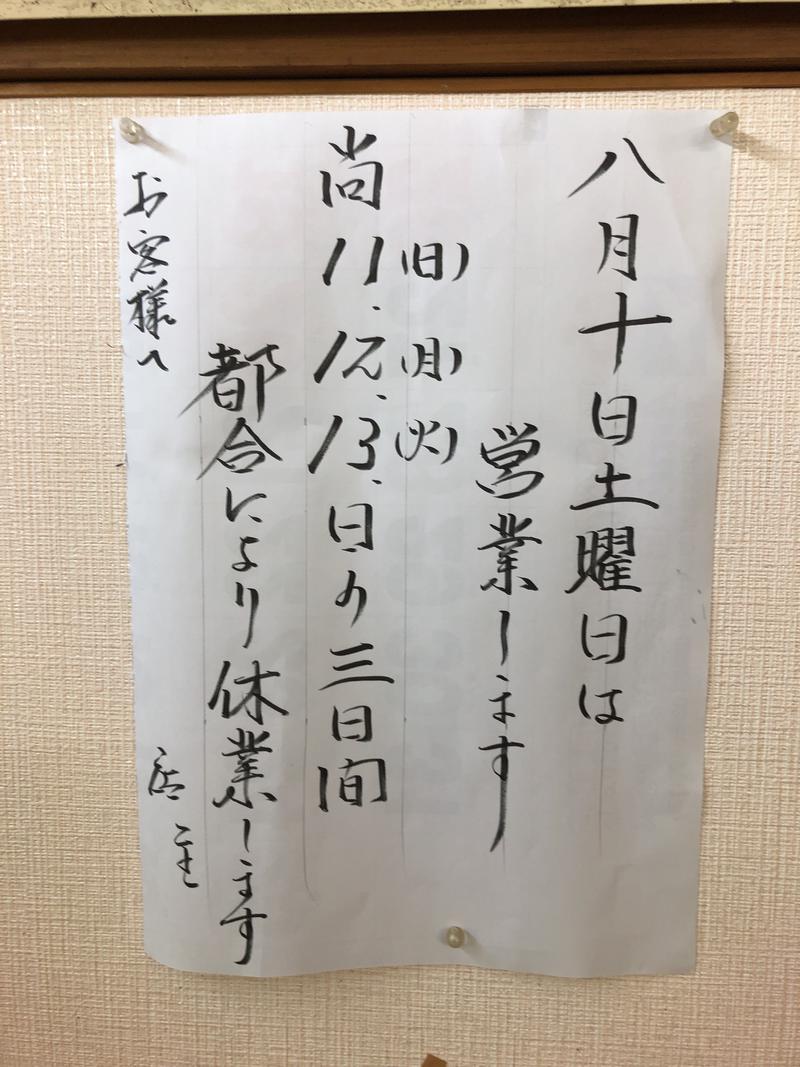 八月十日土曜日は
営業します
(日)(月)(火)
尚11、12、13、日の三日間
都合により休業します
店主
お客様へ